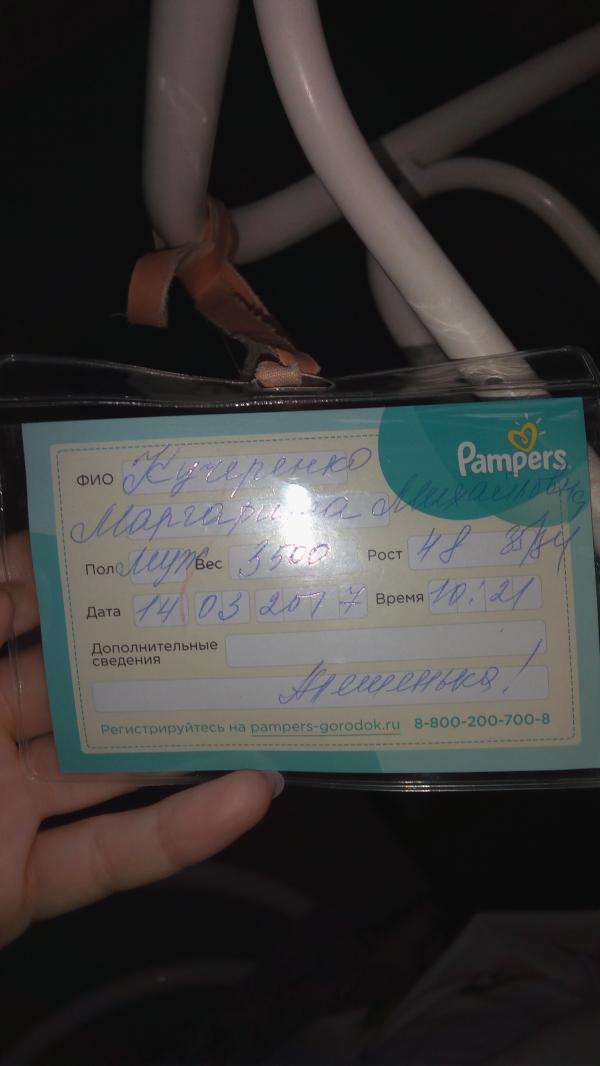 Pampers
ФИО Кучеренко
Маргарита Михайловна
Пол муж Вес 3500 Рост 48 35/34
Дата 14 03 2017 Время 10:21
Дополнительные
сведения
Тёмушка!
Регистрируйтесь на pampers-gorodok.ru 8-800-200-700-8